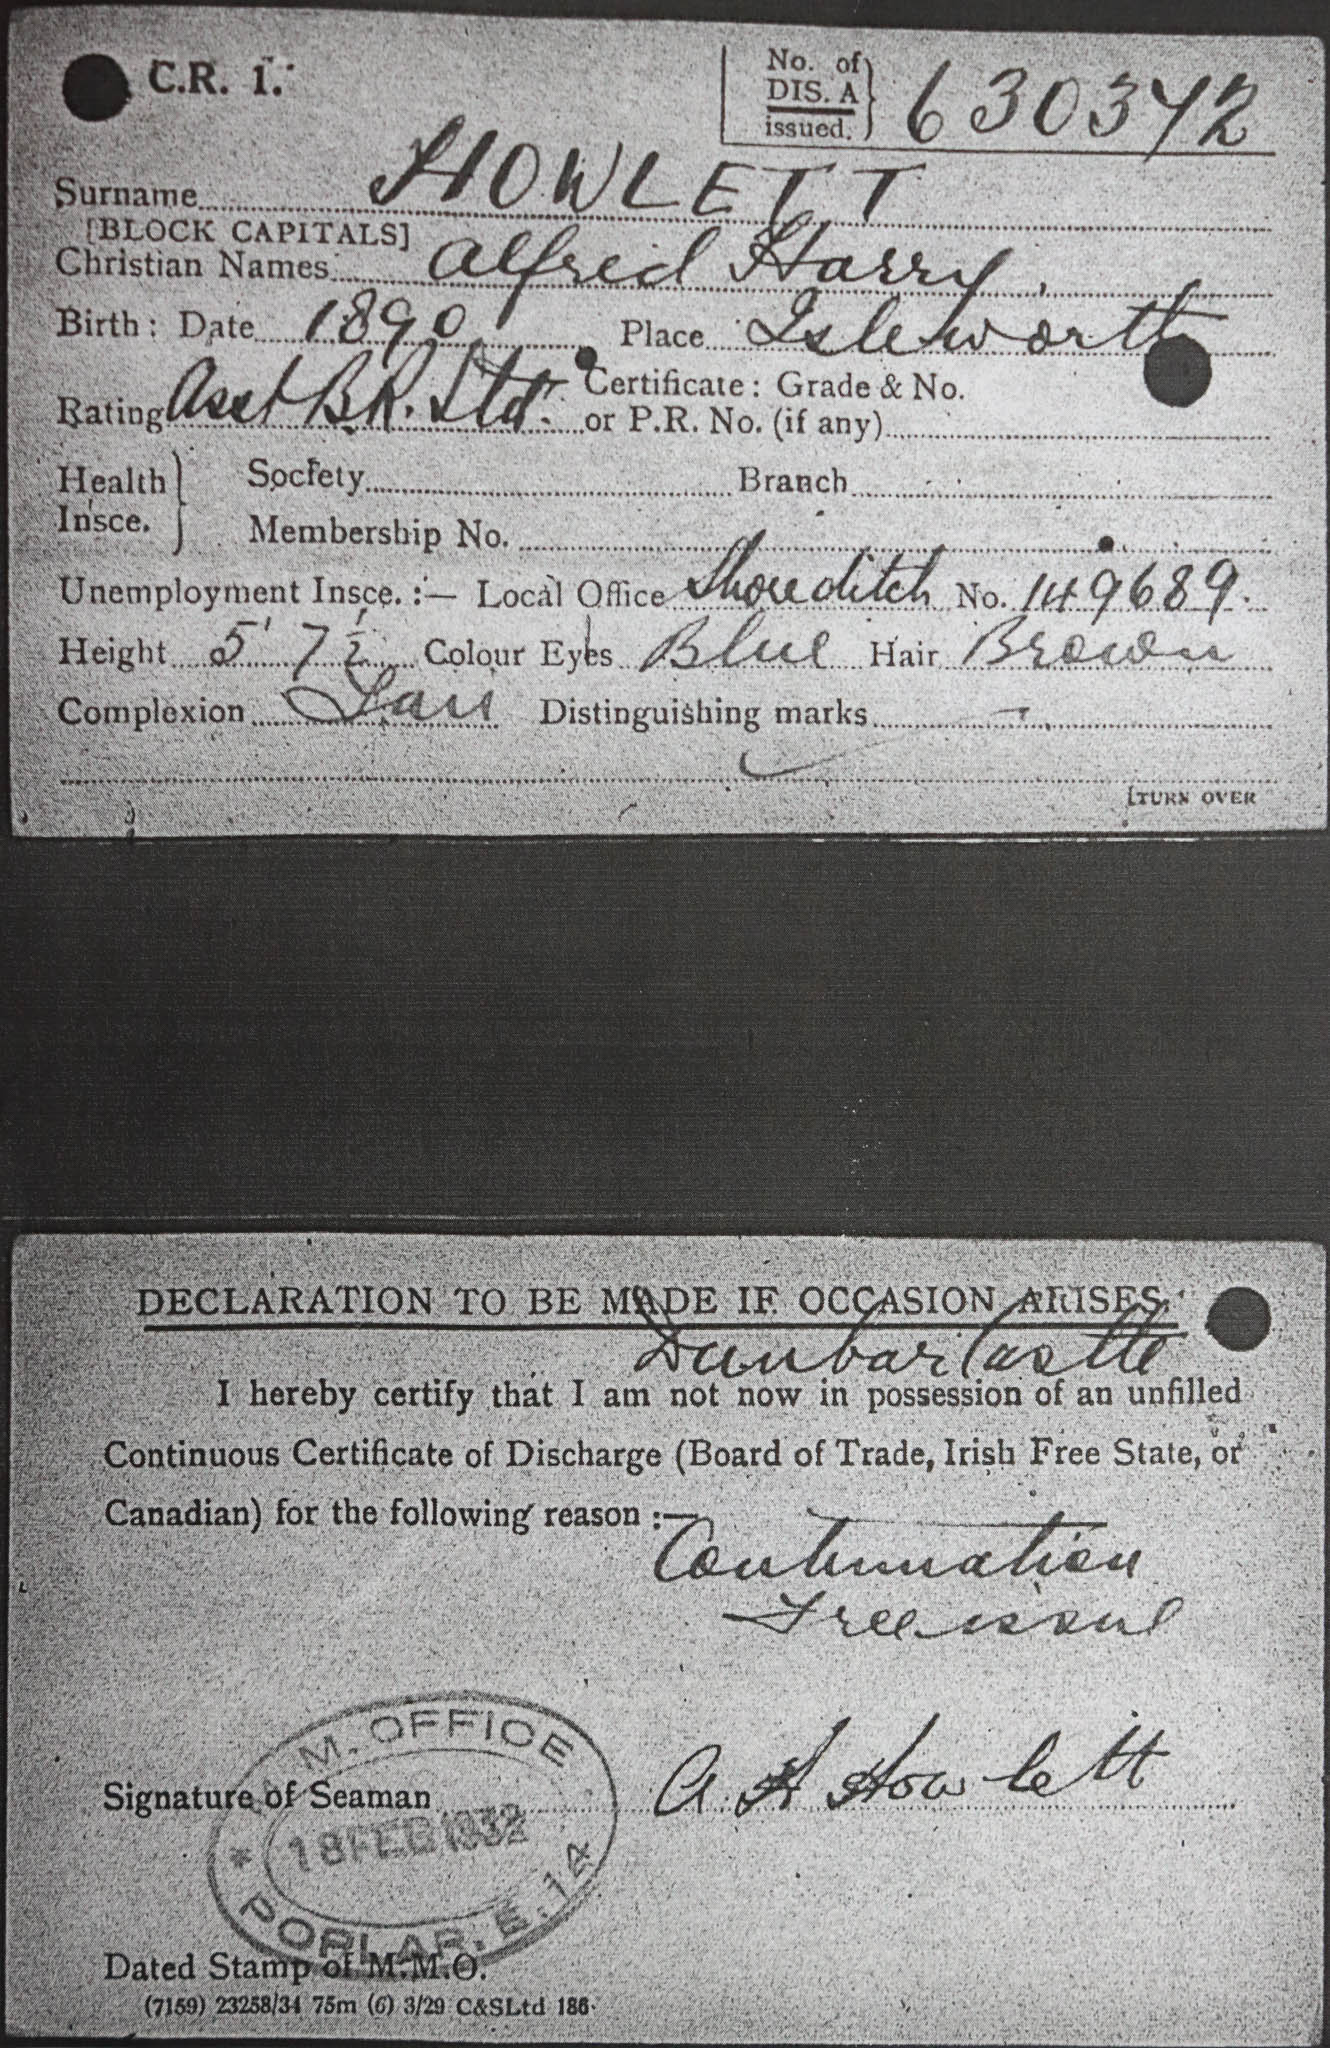 C.R. 1.
No. of
DIS. A
issued.
630372
Surname HOWLETT
[BLOCK CAPITALS]
Christian Names Alfred Harry
Birth: Date 1890 Place Isleworth
Rating Asst B.R. Std. Certificate: Grade & No.
or P.R. No. (if any)
Health Insce. Society Branch
Membership No.
Unemployment Insce. :— Local Office Shoreditch No. 149689.
Height 5' 7½ Colour Eyes Blue Hair Brown
Complexion Distinguishing marks -
[TURN OVER
DECLARATION TO BE MADE IF OCCASION ARISES.
Dunbar Castle
I hereby certify that I am not now in possession of an unfilled
Continuous Certificate of Discharge (Board of Trade, Irish Free State, or
Canadian) for the following reason :—
Continuation
Free issue
M. OFFICE
Signature of Seaman A H Howlett
18 FEB 1932
POPLAR. E. 14
Dated Stamp of M.M.O.
(7159) 23258/34 75m (6) 3/29 C&SLtd 186